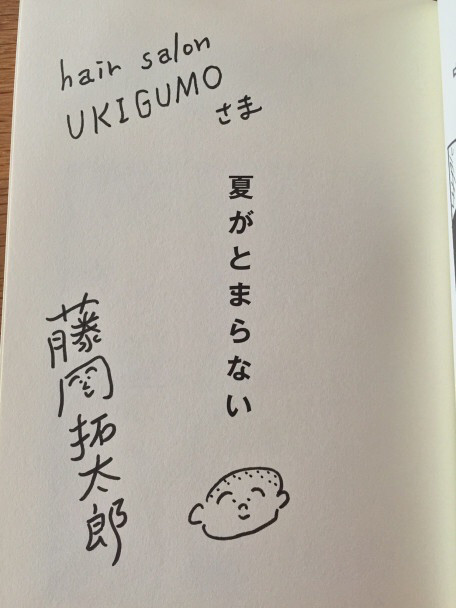 hair salon
UKIGUMO
さま
夏がとまらない
藤岡拓太郎